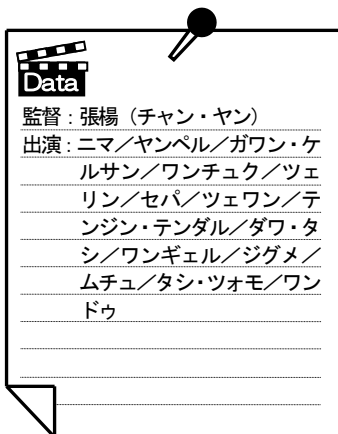 Data
監督：張楊（チャン・ヤン）
出演：ニマ／ヤンペル／ガワン・ケ
ルサン／ワンチュク／ツェ
リン／セパ／ツェワン／テ
ンジン・テンダル／ダワ・タ
シ／ワンギェル／ジグメ／
ムチュ／タシ・ツォモ／ワン
ドゥ